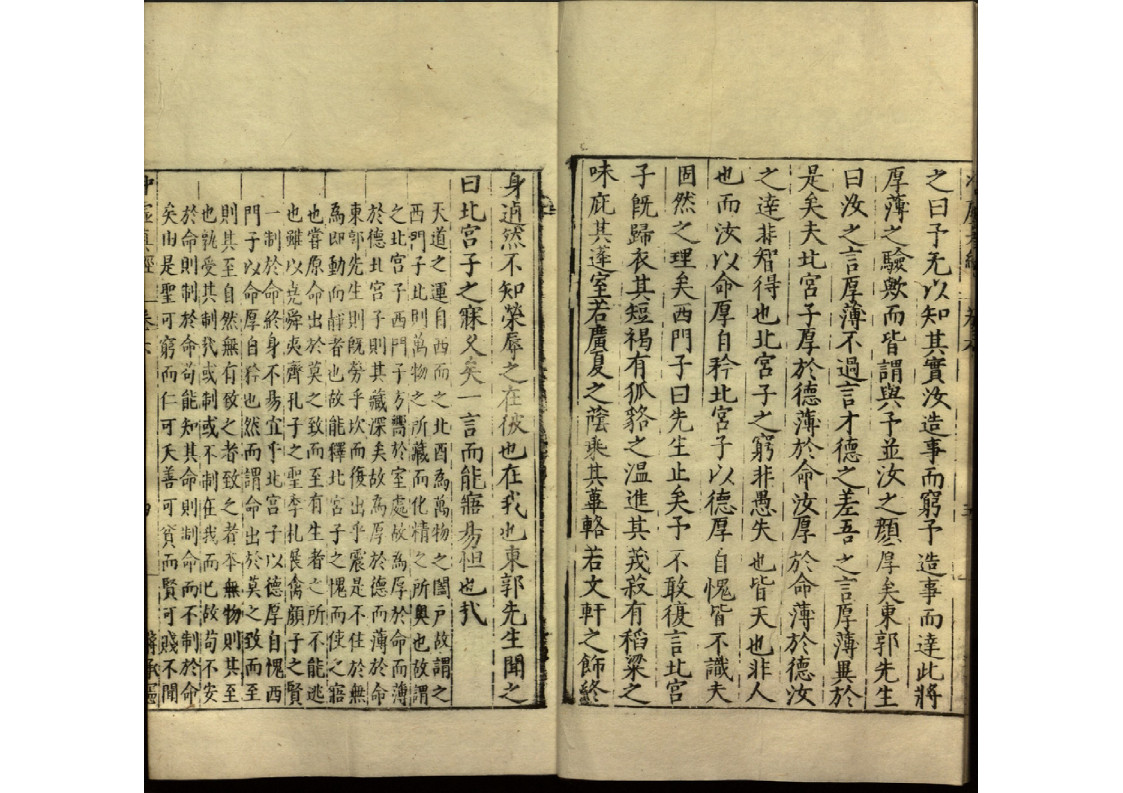 之曰予无以知其實汝造事而窮予造事而達此將
厚薄之驗歟而皆謂與予並汝之顏厚矣東郭先生
曰汝之言厚薄不過言才德之差吾之言厚薄異於
是矣夫北宮子厚於德薄於命汝厚於命薄於德汝
之達非智得也北宮子之窮非愚失也皆天也非人
也而汝以命厚自矜北宮子以德厚自愧皆不識夫
固然之理矣西門子曰先生止矣予不敢復言北宮
子旣歸衣其短褐有狐貉之溫進其茙菽有稻粱之
味庇其蓬室若廣夏之蔭乘其蓽輅若文軒之飾終
身逌然不知榮辱之在彼也在我也東郭先生聞之
曰北宮子之寐久矣一言而能寤易怛也哉
天道之運自西而之北酉為萬物之闔戶故謂之
西門子北則萬物之所藏而化精之所奧也故謂
之北宮子西門子方嚮於室處故為厚於命而薄
於德北宮子則其藏深矣故為厚於德而薄於命
東郭先生則旣勞乎坎而復出乎震是不住於無
為即動而靜者也故能釋北宮子之愧而使之寤
也嘗原命出於莫之致而至有生者之所不能逃
也雖以堯舜夷齊孔子之聖季札展禽顏子之賢
一制於命終身不易宜乎北宮子以德厚自愧西
門子以命厚自矜也然而謂命出於莫之致而至
則其至自然無有致之者致之者本無物則其至
也孰受其制哉或制或不制在我而已故苟不安
於命則制於命苟能知其命則制命而不制於命
矣由是聖可窮而仁可夭善可貧而賢可賤不聞